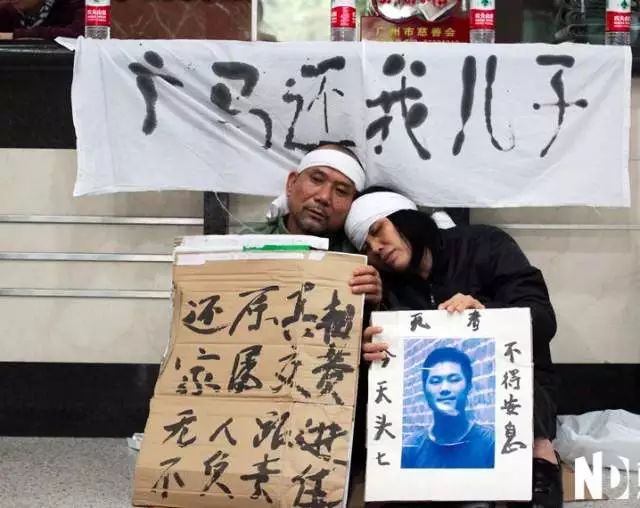 广州市慈善会
广马还我儿子
还原真相
家属交费
无人跟进
不负责任
死者
今天头七
不得安息
ND